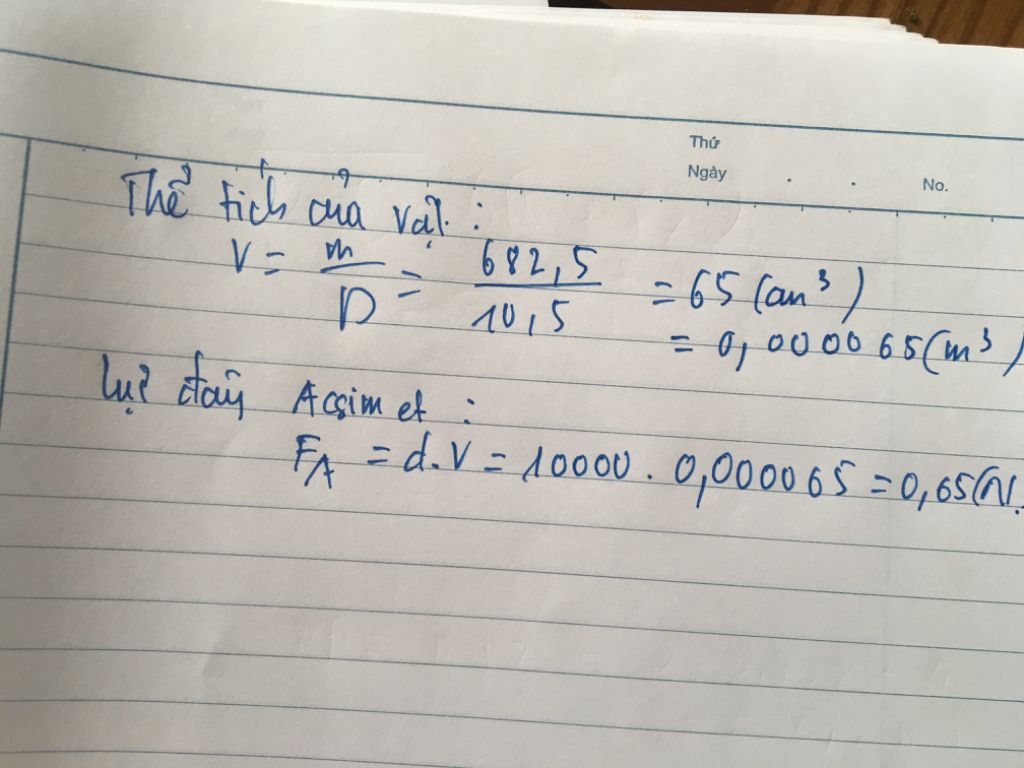 Thứ
Ngày . .
No.
Thể tích của vật :
V = m/D = 682,5/10,5 = 65 (cm³)
= 0,000065 (m³)
Lực đẩy Acsimet :
F_A = d.V = 10000 . 0,000065 = 0,65 (N).